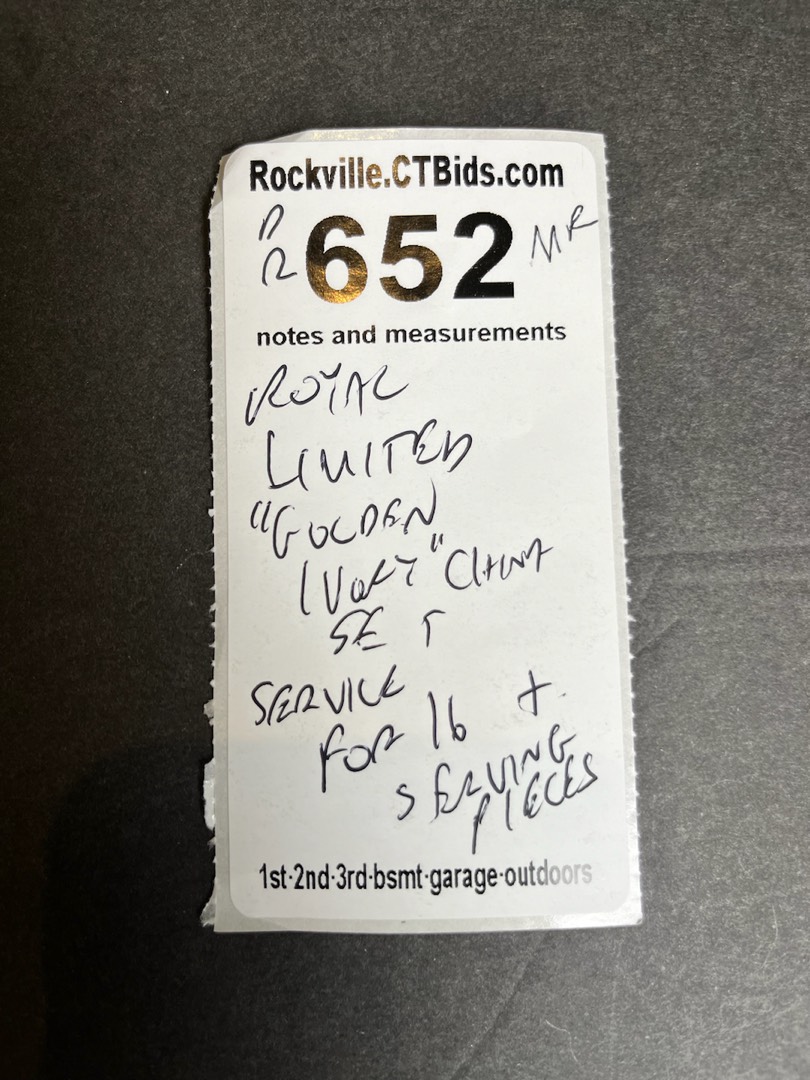 Rockville.CTBids.com
DR 652 MR
notes and measurements
ROYAL
LIMITED
"GOLDEN
IVORY" CHINA
SET
SERVICE
FOR 16 +
SERVING
PIECES
1st·2nd·3rd·bsmt·garage·outdoors